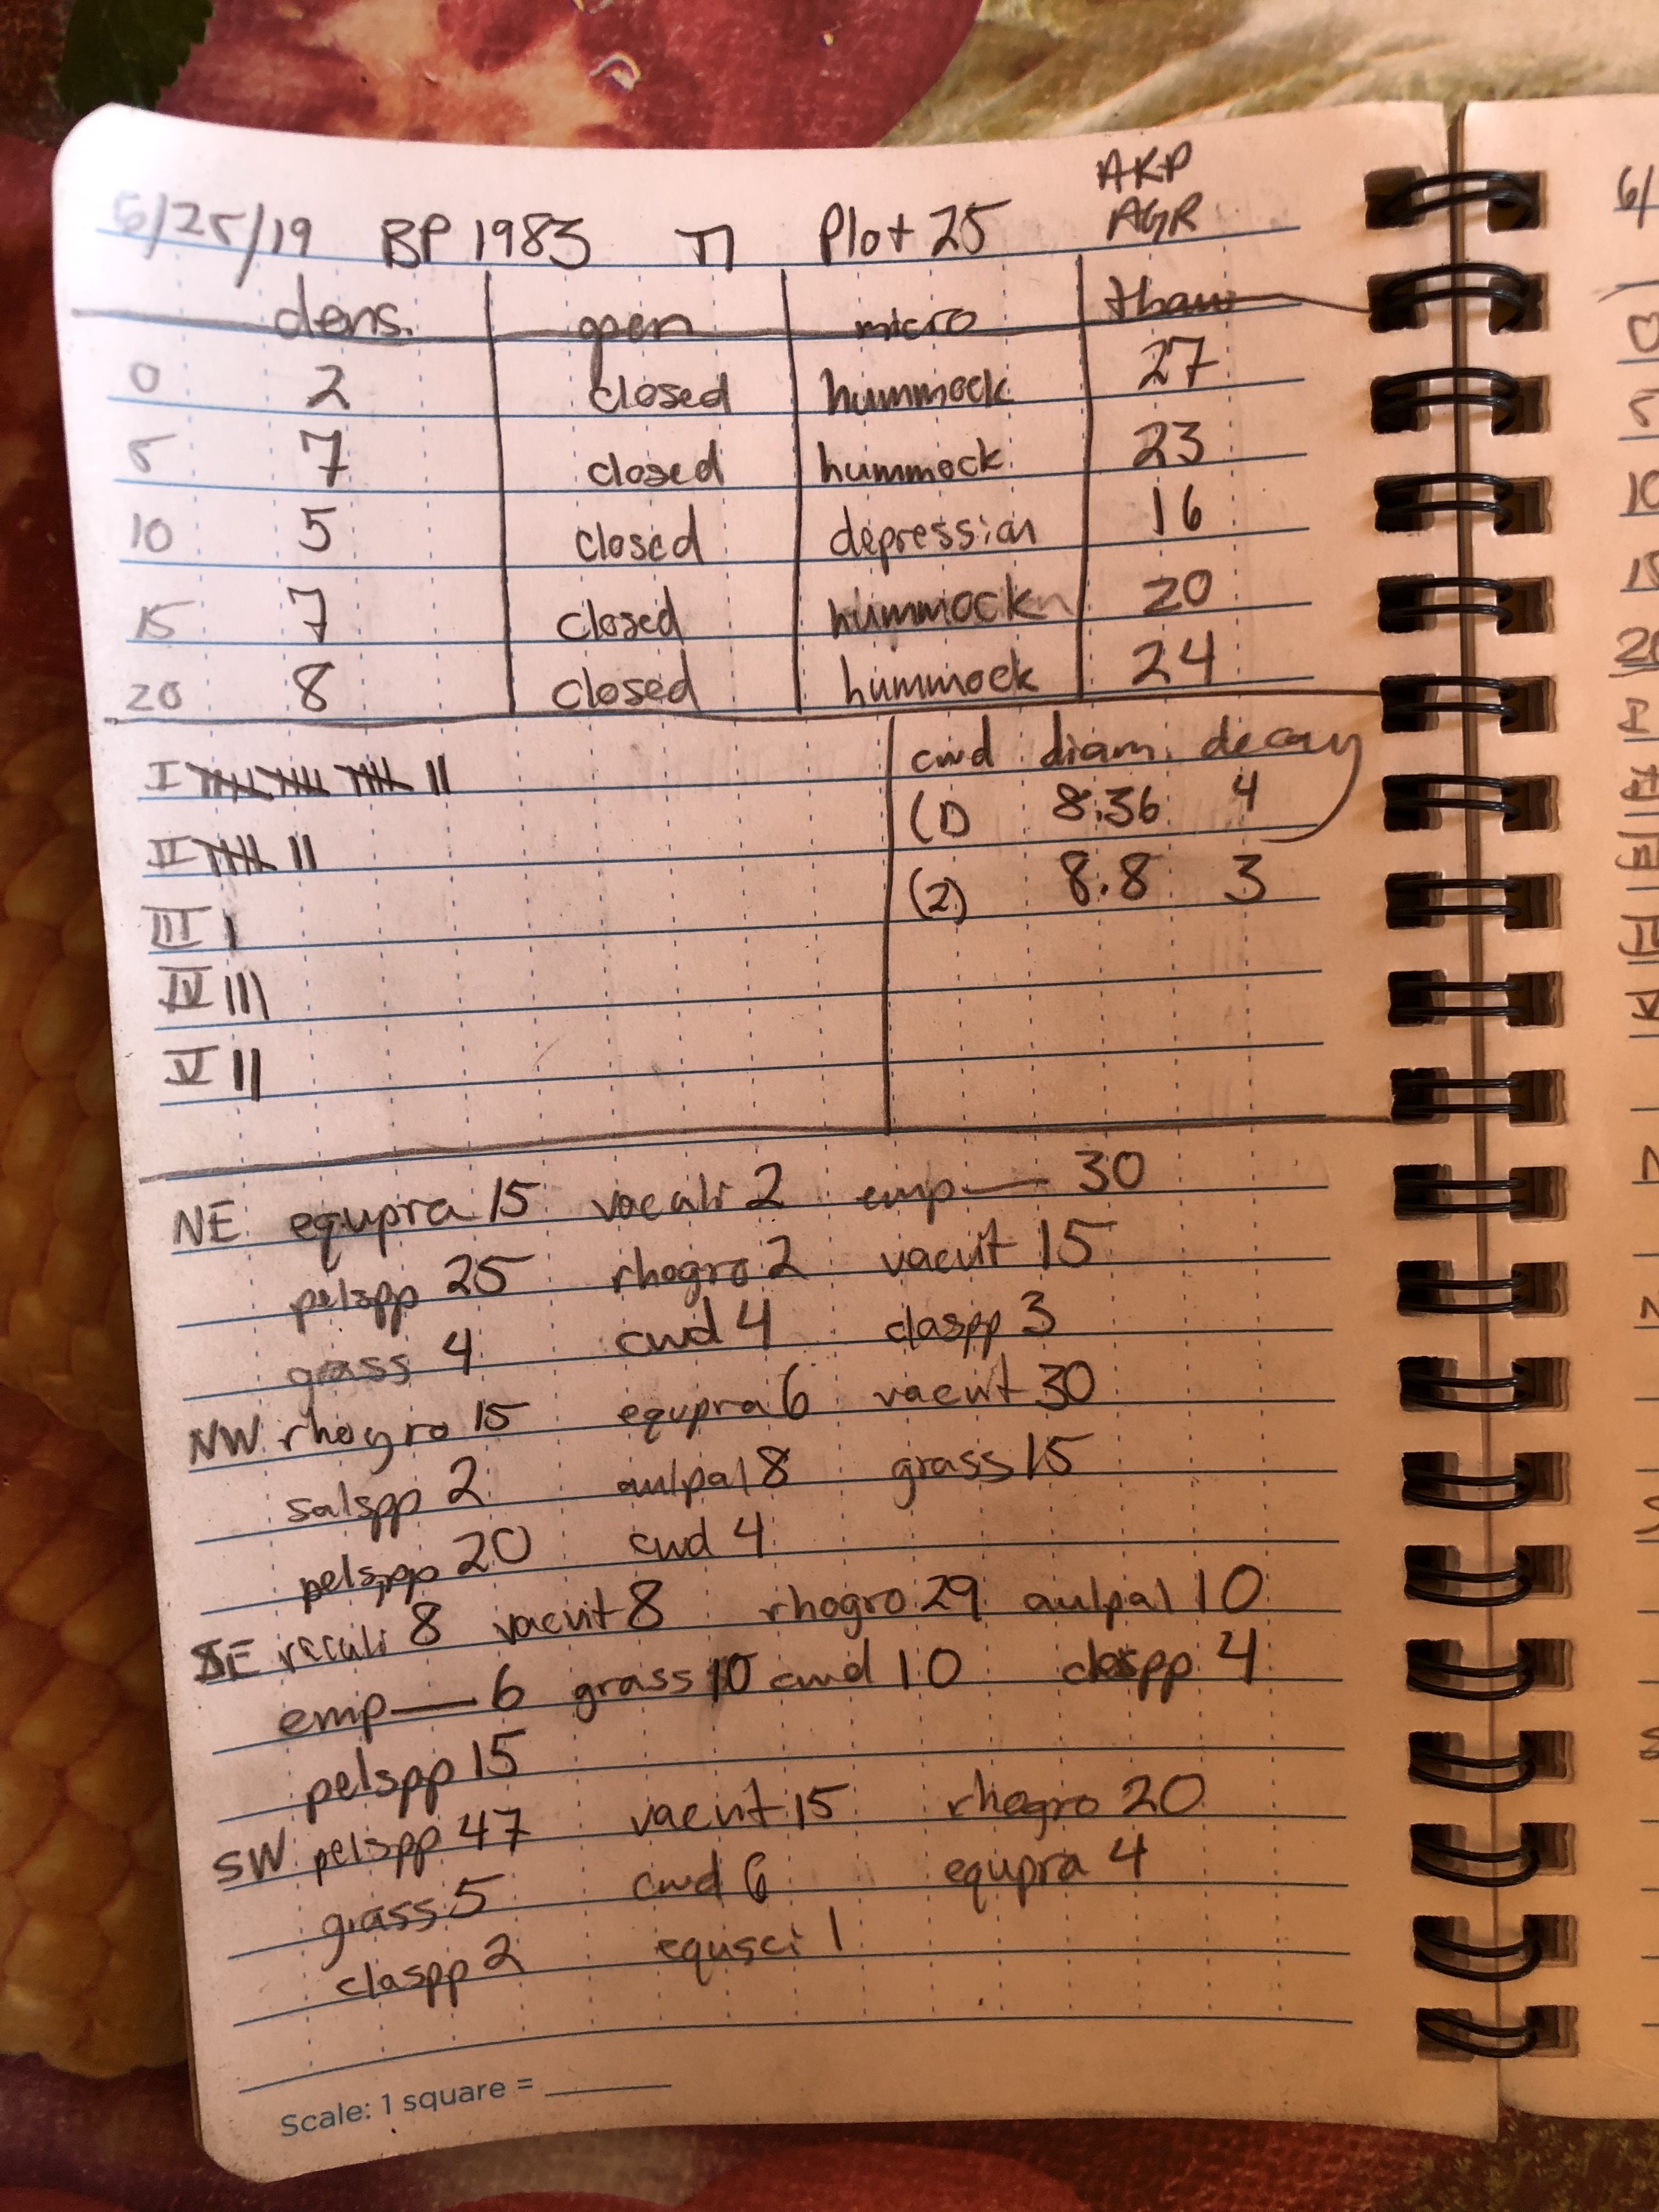 6/25/19 BP 1983 T1 Plot 25 AKP AGR
dens. open micro thaw
0 2 closed hummock 27
5 7 closed hummock 23
10 5 closed depression 16
15 7 closed hummock 20
20 8 closed hummock 24
I 卌 卌 卌 II
II 卌 II
III I
IV III
V II
cwd diam. decay
(1) 8.36 4
(2) 8.8 3
NE equpra 15 vacali 2 emp— 30
pelspp 25 rhogro 2 vacvit 15
grass 4 cwd 4 claspp 3
NW rhogro 15 equpra 6 vacvit 30
salspp 2 aulpal 8 grass 15
pelspp 20 cwd 4
SE vaculi 8 vacvit 8 rhogro 29 aulpal 10
emp— 6 grass 10 cwd 10 claspp 4
pelspp 15
SW pelspp 47 vacvit 15 rhogro 20
grass 5 cwd 6 equpra 4
claspp 2 equsci 1
Scale: 1 square = ______
6/
0
5
10
15
20